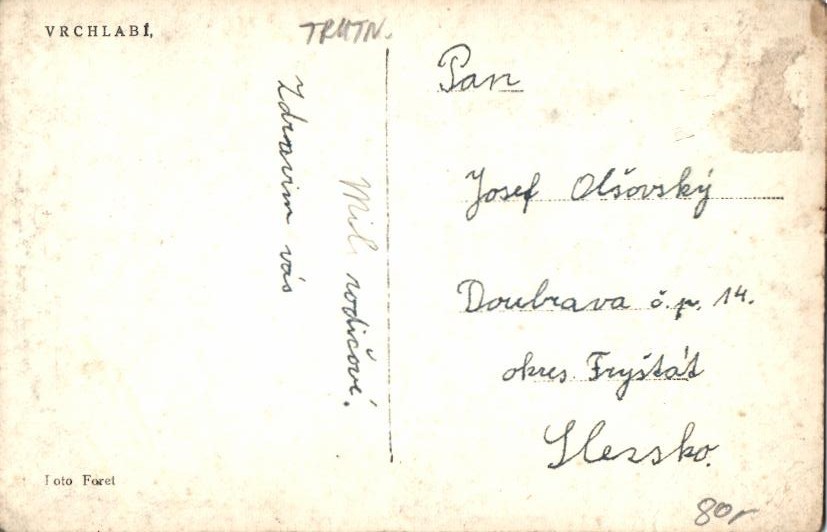 VRCHLABÍ,
TRUTN.
Mil. rodičové.
Zdravim vás
Pan
Josef Olšovský
Doubrava č.p. 14.
okres Fryštát
Slezsko.
Foto Foret
80,-